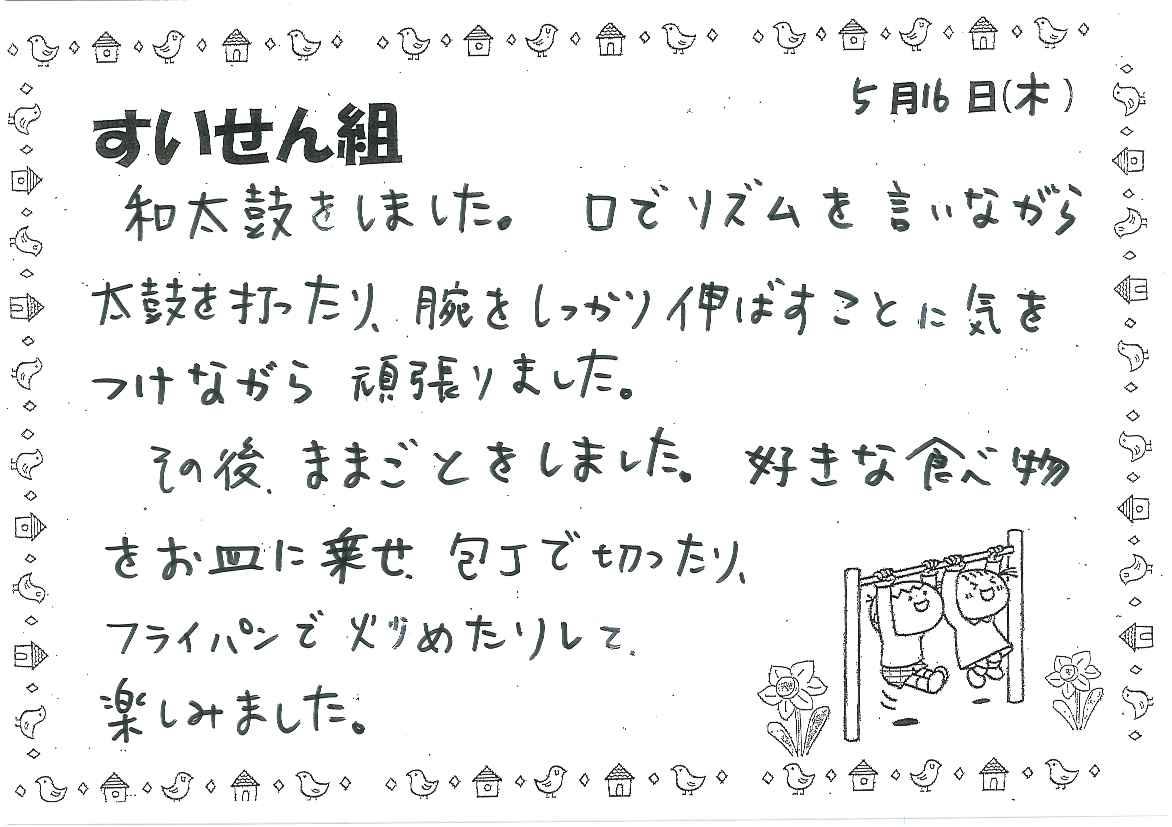 5月16日(木)
すいせん組
和太鼓をしました。 口でリズムを言いながら
太鼓を打ったり、腕をしっかり伸ばすことに気を
つけながら頑張りました。
その後、ままごとをしました。好きな食べ物
をお皿に乗せ、包丁で切ったり、
フライパンで炒めたりして、
楽しみました。